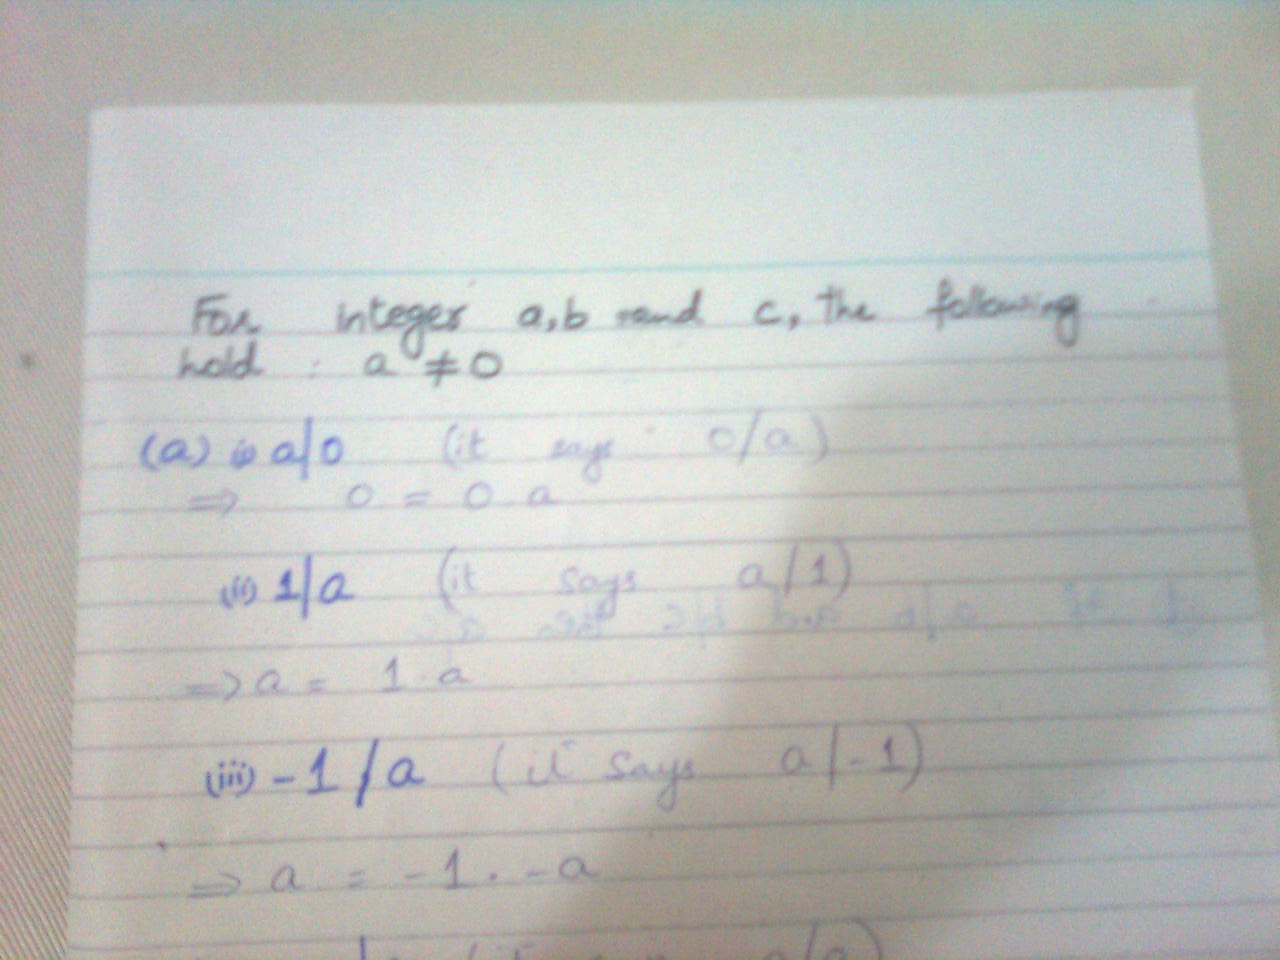 For integer a,b and c, the following
hold : a ≠ 0
(a) i) a|0 (it says 0/a)
⇒ 0 = 0 a
(ii) 1|a (it says a/1)
⇒ a = 1.a
(iii) -1/a (it says a/-1)
⇒ a = -1 . -a